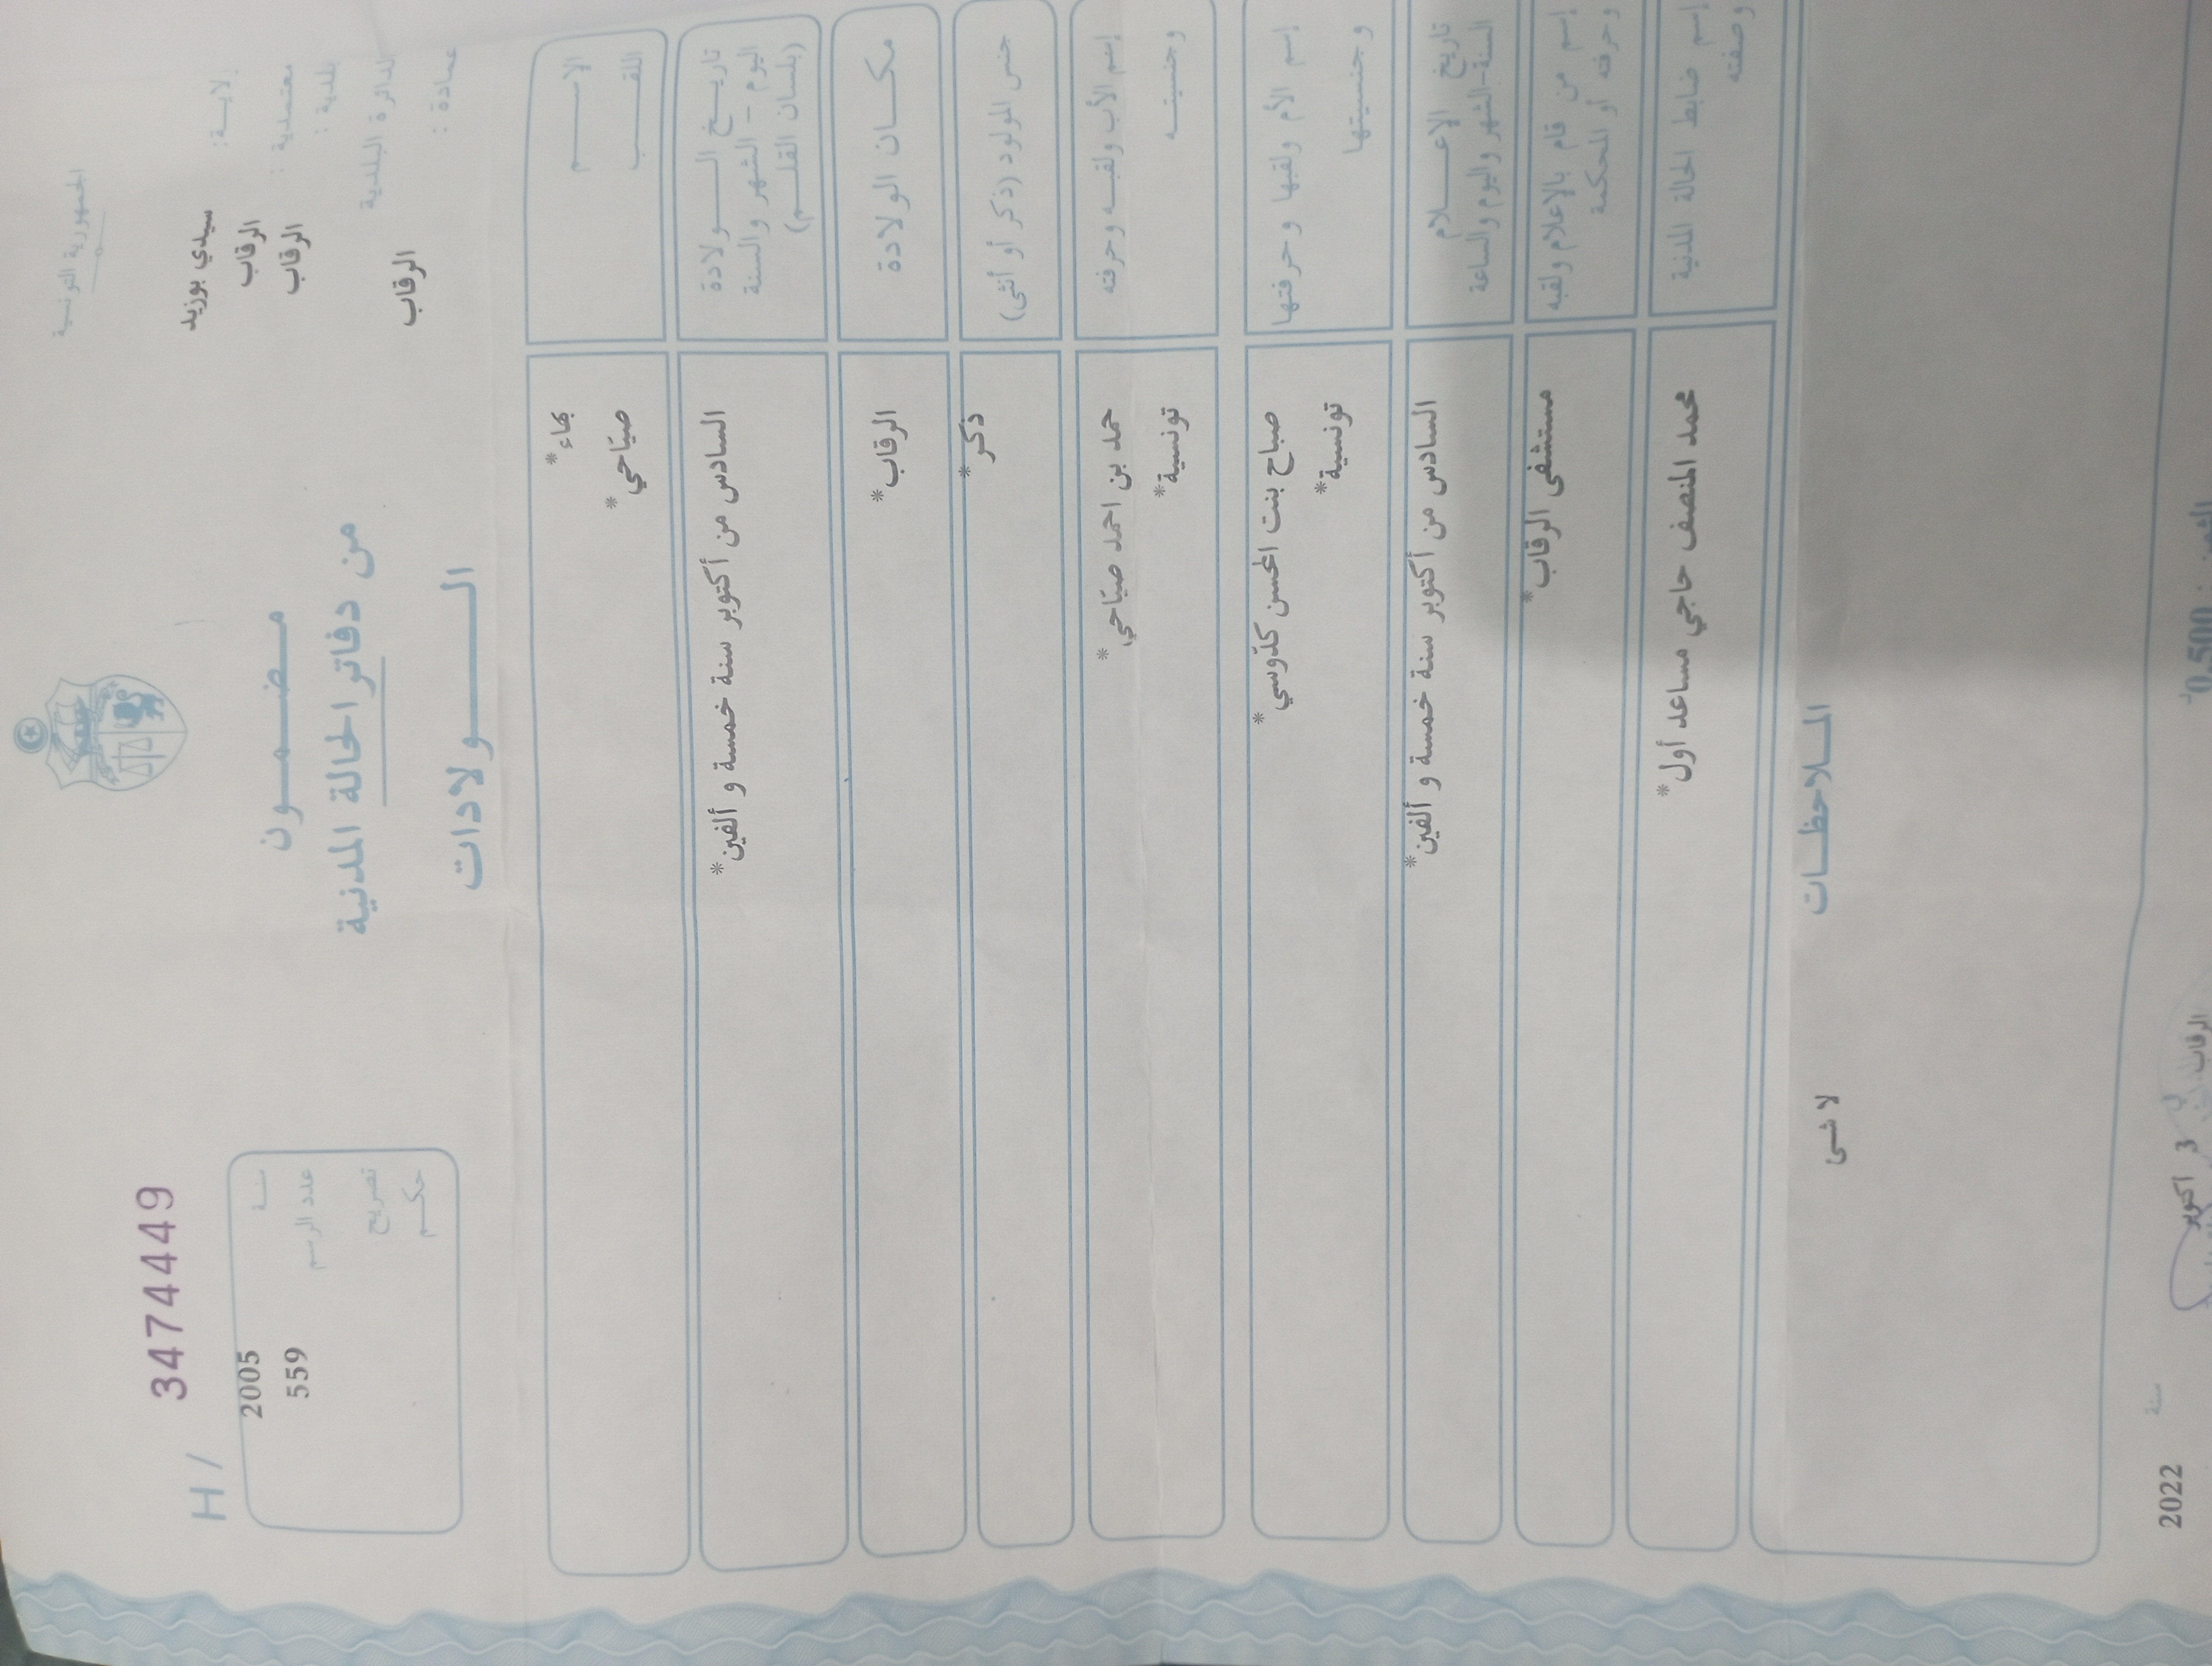 الجمهورية التونسية
H / 3474449
ولايــة: سيدي بوزيد
معتمدية : الرقاب
بلدية : الرقاب
الدائرة البلدية
عمادة : الرقاب
مـضـمـــون
من دفاتر الحالة المدنية
الـــــولادات
سنـة 2005
عدد الرسم 559
تصريح
حكـم
الإســـم بهاء*
اللقـــب صيّاحي*
تاريـخ الــــولادة
اليوم – الشهر والسنة
(بلسان القلــم)
السادس من أكتوبر سنة خمسة و ألفين*
مكــان الولادة الرقاب*
جنس المولود (ذكر أو أنثى) ذكر*
إسم الأب ولقبـه وحرفته حمد بن احمد صيّاحي*
وجنسيتــه تونسية*
إسم الأم ولقبها وحرفتها صباح بنت الحسن كدّوسي*
وجنسيتها تونسية*
تاريخ الإعـــلام
السنة-الشهر واليوم والساعة
السادس من أكتوبر سنة خمسة و ألفين*
إسم من قام بالإعلام ولقبه
وحرفته أو المحكمة
مستشفى الرقاب*
إسم ضابط الحالة المدنية
وصفته
محمد المنصف حاجي مساعد أول*
المـلاحظــات
لا شى
الثمن : 0,500د
الرقاب في 3 أكتوبر سنة 2022